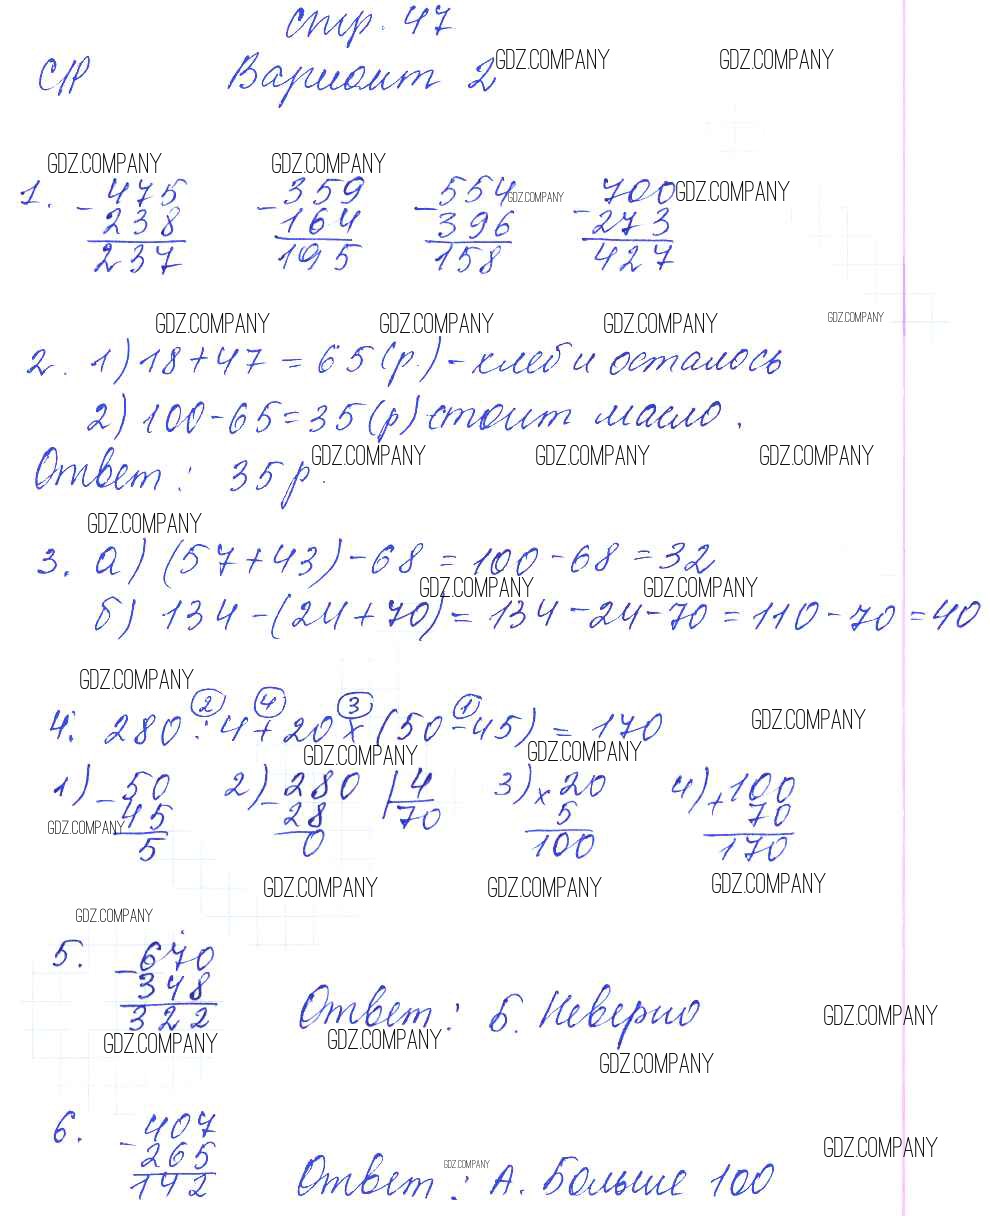 стр. 47
С/Р Вариант 2 GDZ.COMPANY GDZ.COMPANY
GDZ.COMPANY GDZ.COMPANY
1. - 475 - 359 - 554 GDZ.COMPANY - 700 GDZ.COMPANY
238 164 396 273
237 195 158 427
GDZ.COMPANY GDZ.COMPANY GDZ.COMPANY GDZ.COMPANY
2. 1) 18 + 47 = 65 (р.) - хлеб и осталось
2) 100 - 65 = 35 (р) стоит масло.
Ответ: 35 р. GDZ.COMPANY GDZ.COMPANY GDZ.COMPANY
GDZ.COMPANY
3. а) (57 + 43) - 68 = 100 - 68 = 32
GDZ.COMPANY GDZ.COMPANY
б) 134 - (24 + 70) = 134 - 24 - 70 = 110 - 70 = 40
GDZ.COMPANY
2 4 3 1
4. 280 : 4 + 20 x (50 - 45) = 170 GDZ.COMPANY
GDZ.COMPANY GDZ.COMPANY
1) - 50 2) - 280 | 4 3) x 20 4) + 100
GDZ.COMPANY 45 28 70 5 70
5 0 100 170
GDZ.COMPANY GDZ.COMPANY GDZ.COMPANY
GDZ.COMPANY
5. - 670
348
322 Ответ: Б. Неверно GDZ.COMPANY
GDZ.COMPANY GDZ.COMPANY
GDZ.COMPANY
6. - 407
265 GDZ.COMPANY
142 Ответ: А. Больше 100 GDZ.COMPANY